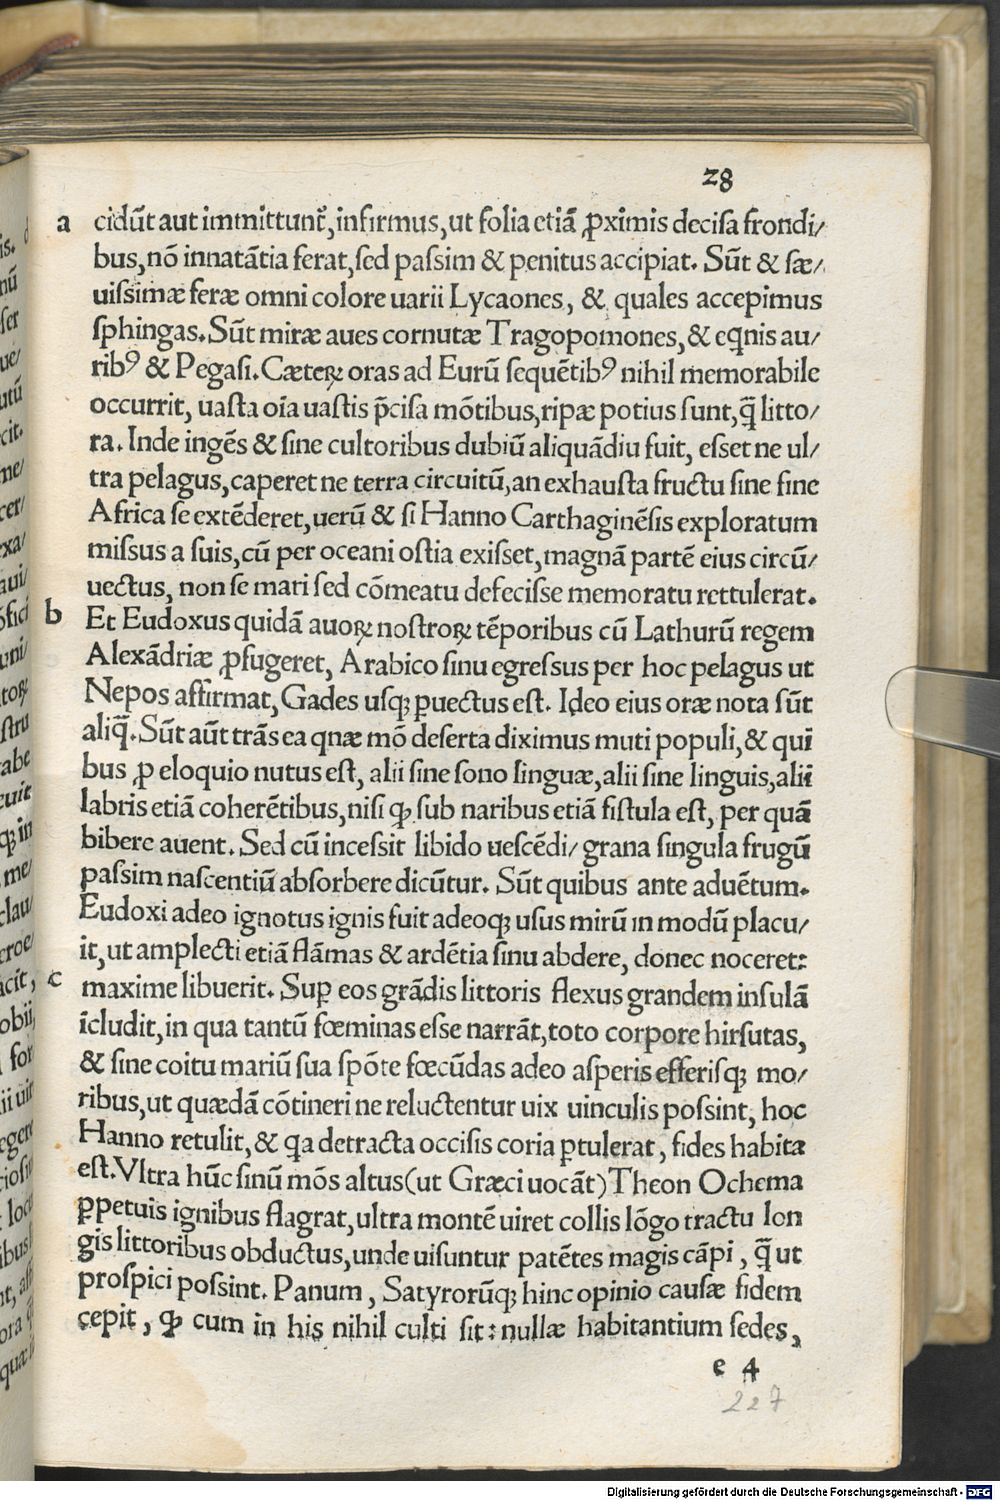 28
a cidūt aut immittunt᷑, infirmus, ut folia etiā ꝓximis decisa frondi/
bus, nō innatātia ferat, sed passim & penitus accipiat. Sūt & sæ/
uissimæ feræ omni colore uarii Lycaones, & quales accepimus
sphingas. Sūt miræ aues cornutæ Tragopomones, & eq̄nis au/
ribꝰ & Pegasi. Cæteꝝ oras ad Eurū sequētibꝰ nihil memorabile
occurrit, uasta oīa uastis p̄cisa mōtibus, ripæ potius sunt, q̄ litto/
ra. Inde ingēs & sine cultoribus dubiū aliquādiu fuit, esset ne ul/
tra pelagus, caperet ne terra circuitū, an exhausta fructu sine fine
Africa se extēderet, uerū & si Hanno Carthaginēsis exploratum
missus a suis, cū per oceani ostia exisset, magnā partē eius circū/
uectus, non se mari sed cōmeatu defecisse memoratu rettulerat.
b Et Eudoxus quidā auoꝝ nostroꝝ tēporibus cū Lathurū regem
Alexādriæ ꝓfugeret, Arabico sinu egressus per hoc pelagus ut
Nepos affirmat, Gades usqꝫ ꝑuectus est. Ideo eius oræ nota sūt
aliq̄. Sūt aūt trās ea qnæ mō deserta diximus muti populi, & qui
bus ꝓ eloquio nutus est, alii sine sono linguæ, alii sine linguis, alii
labris etiā coherētibus, nisi ꝙ sub naribus etiā fistula est, per quā
bibere auent. Sed cū incessit libido uescēdi/ grana singula frugū
passim nascentiū absorbere dicūtur. Sūt quibus ante aduētum.
Eudoxi adeo ignotus ignis fuit adeoqꝫ usus mirū in modū placu/
it, ut amplecti etiā flāmas & ardētia sinu abdere, donec noceret:
c maxime libuerit. Suꝑ eos grādis littoris flexus grandem insulā
īcludit, in qua tantū fœminas esse narrāt, toto corpore hirsutas,
& sine coitu mariū sua spōte fœcūdas adeo asperis efferisqꝫ mo/
ribus, ut quædā cōtineri ne reluctentur uix uinculis possint, hoc
Hanno retulit, & qa detracta occisis coria ꝑtulerat, fides habita
est. Vltra hūc sinū mōs altus (ut Græci uocāt) Theon Ochema
ꝑpetuis ignibus flagrat, ultra montē uiret collis lōgo tractu lon
gis littoribus obductus, unde uisuntur patētes magis cāpi, q̄ ut
prospici possint. Panum, Satyrorūqꝫ hinc opinio causæ fidem
cepit, ꝙ cum in his nihil culti sit: nullæ habitantium sedes,
e 4
227
Digitalisierung gefördert durch die Deutsche Forschungsgemeinschaft - DFG